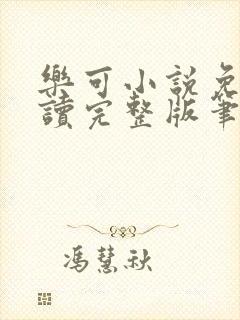 樂可小說免
讀完整版筆
馮慧秋